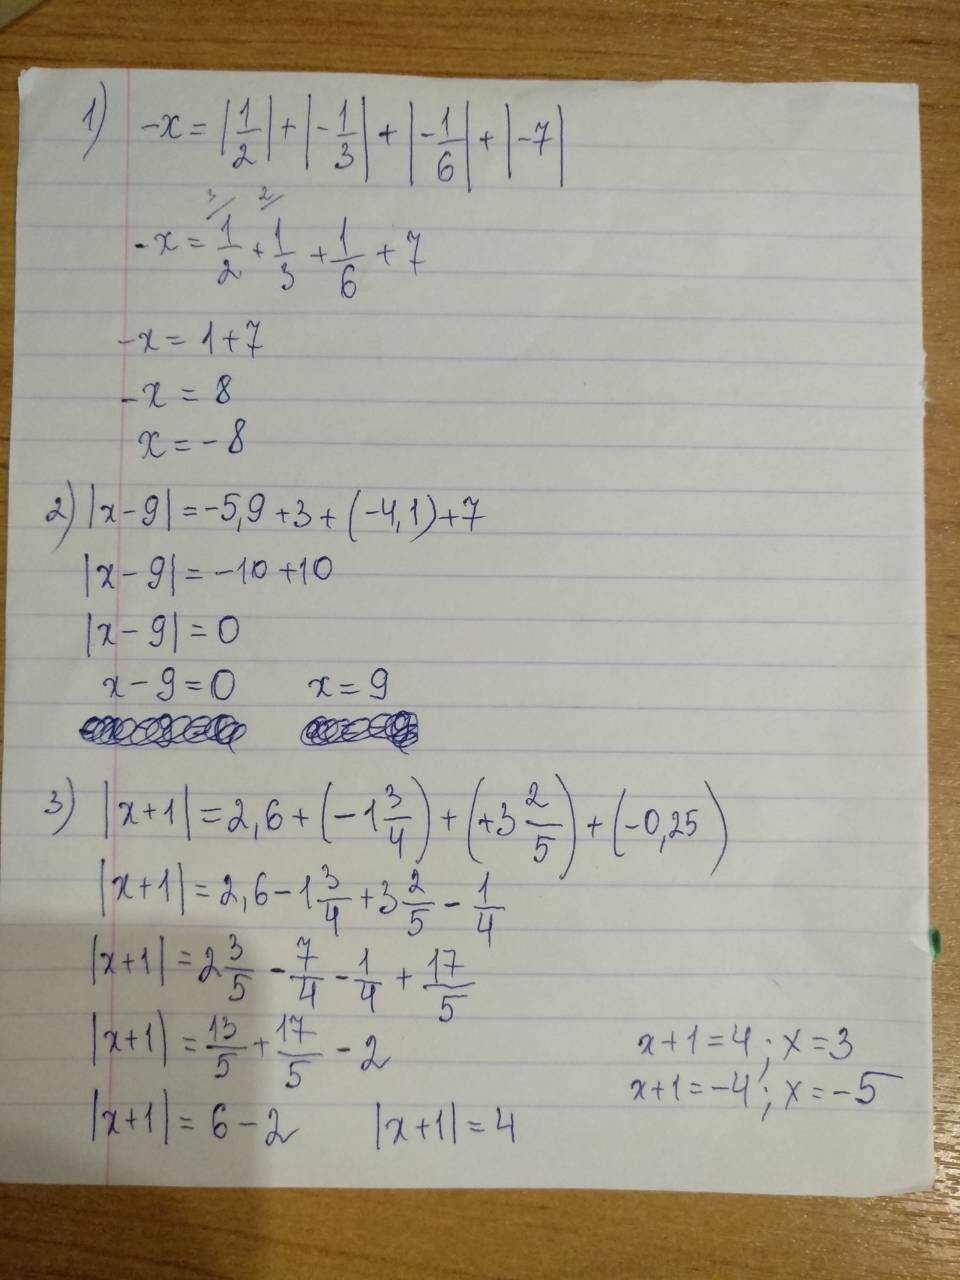 1) -x = |1/2| + |-1/3| + |-1/6| + |-7|
3/ 2/
-x = 1/2 + 1/3 + 1/6 + 7
-x = 1+7
-x = 8
x = -8
2) |x-9| = -5,9 +3 + (-4,1)+7
|x-9| = -10 +10
|x-9| = 0
x-9=0 x=9
3) |x+1| = 2,6 + (-1 3/4) + (+3 2/5) + (-0,25)
|x+1| = 2,6 - 1 3/4 + 3 2/5 - 1/4
|x+1| = 2 3/5 - 7/4 - 1/4 + 17/5
|x+1| = 13/5 + 17/5 - 2
|x+1| = 6-2 |x+1| = 4
x+1=4; x=3
x+1=-4; x=-5